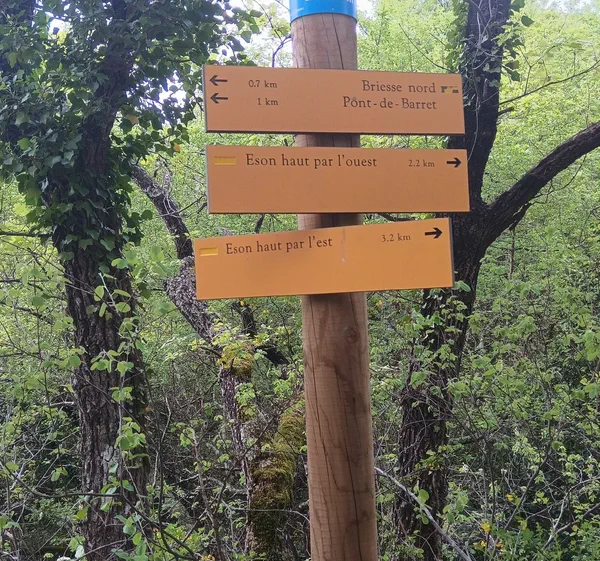 ← 0.7 km Briesse nord
← 1 km Pont-de-Barret
Eson haut par l'ouest 2.2 km →
Eson haut par l'est 3.2 km →